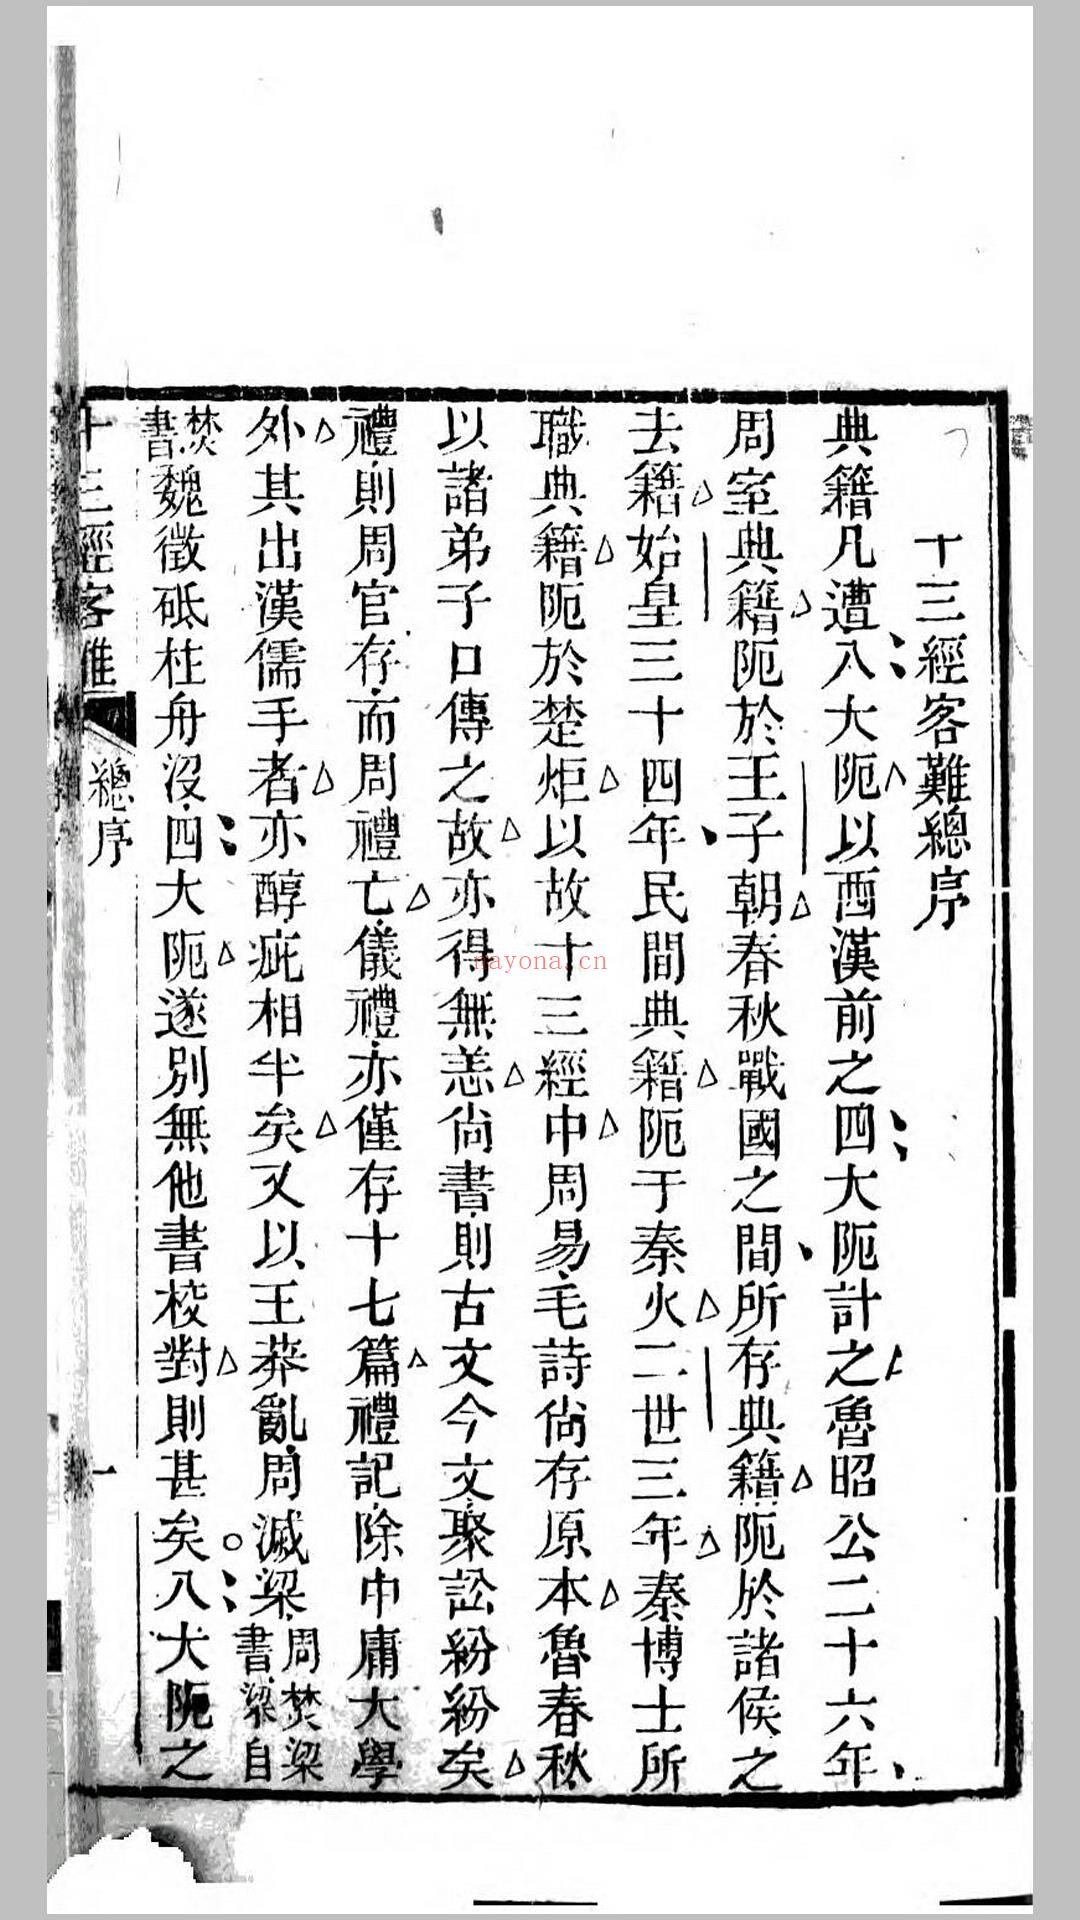 十三經客難總序
典籍凡遭八大阨以西漢前之四大阨計之魯昭公二十六年
周室典籍阨於王子朝春秋戰國之間所存典籍阨於諸侯之
去籍始皇三十四年民間典籍阨于秦火二世三年秦博士所
職典籍阨於楚炬以故十三經中周易毛詩尙存原本魯春秋
以諸弟子口傳之故亦得無恙尙書則古文今文聚訟紛紛矣
禮則周官存而周禮亡儀禮亦僅存十七篇禮記除中庸大學
外其出漢儒手者亦醇疵相半矣又以王莽亂周滅梁周焚梁書梁自
焚書魏徵砥柱舟沒四大阨遂別無他書校對則甚矣八大阨之
十三經客難
總序
一
nayona.cn